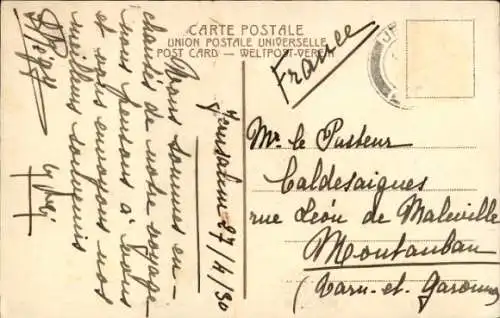 CARTE POSTALE
UNION POSTALE UNIVERSELLE
POST CARD — WELTPOST-VEREIN
France
Jérusalem 27/4/30
Nous sommes en-
chantés de notre voyage
nous pensons à vous
et vous envoyons nos
meilleurs souvenirs
Mr le Pasteur
Caldesaigues
rue Léon de Maleville
Montauban
(Tarn-et-Garonne